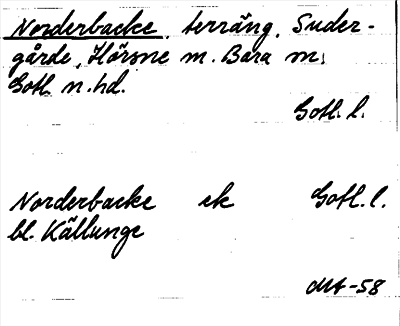 Norderbacke, terräng, Suder-
gårde, Hörsne m. Bara sn,
Gotl. n. hd.
Gotl. l.
Norderbacke ek Gotl. l.
bl. Källunge
MA-58